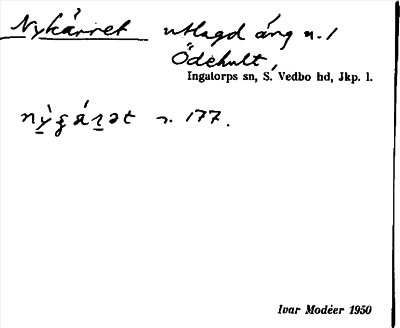 Nykärret utlagd äng n. 1
Ödehult,
Ingatorps sn, S. Vedbo hd, Jkp. l.
177.
Ivar Modéer 1950